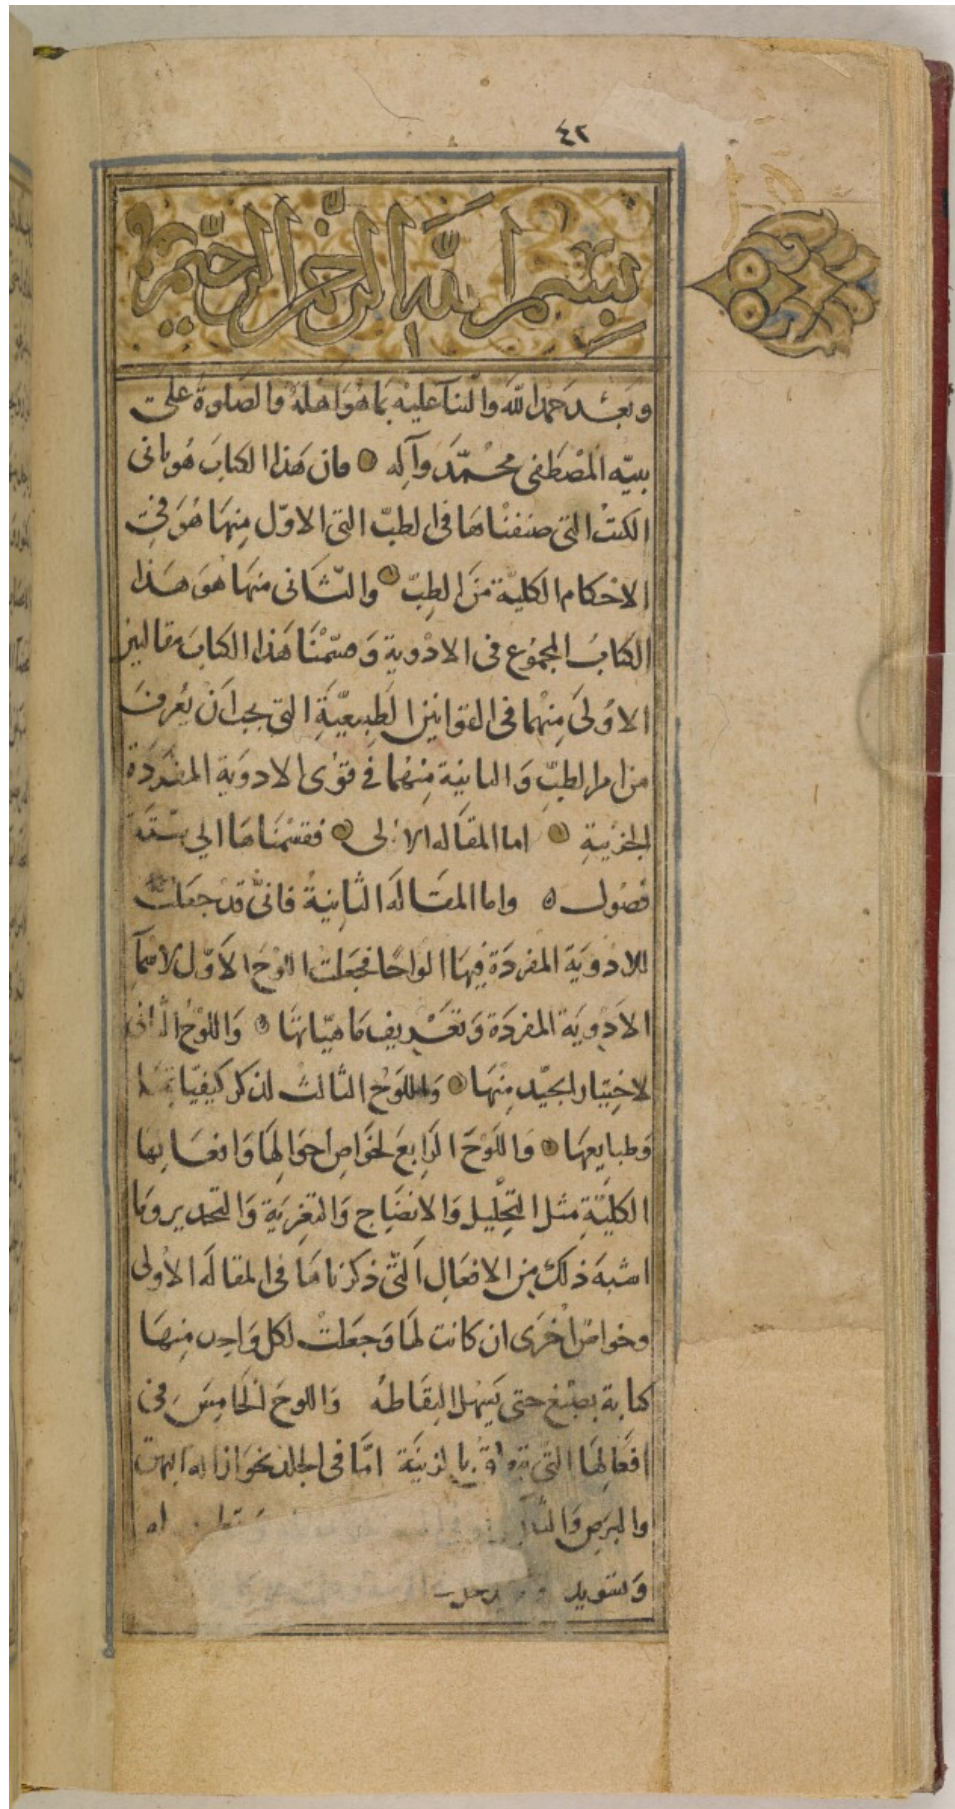 ٤٢
بسم الله الرحمن الرحيم
وبعد حمد الله والثنا عليه بما هو اهله والصلوة على
نبيه المصطفى محمد وآله فان هذا الكتاب هو ثانى
الكتب التى صنفناها فى الطب التى الاول منها هو فى
الاحكام الكلية من الطب والثانى منها هو هذا
الكتاب المجموع فى الادوية وقسمنا هذا الكتاب مقالتين
الاولى منهما فى القوانين الطبيعية التى يجب ان يعرف
من امر الطب والثانية منهما فى قوى الادوية المفردة
الجزئية اما المقاله الاولى فقسمناها الى ستة
فصول واما المقالة الثانية فانى قد جعلت
للادوية المفردة فيها الواحا فجعلت اللوح الاول لاسما
الادوية المفردة وتعريف ماهياتها واللوح الثانى
لاختيار الجيد منها واللوح الثالث لذكر كيفياتها
وطبايعها واللوح الرابع لخواص احوالها وافعالها
الكلية مثل التحليل والانضاج والتغرية والتخدير وما
اشبه ذلك من الافعال التى ذكرناها فى المقالة الاولى
وخواص اخرى ان كانت لها وجعلت لكل واحد منها
كتابة بصبغ حتى يسهل التقاطه واللوح الخامس فى
افعالها التى بالزينة اما فى الجلد نحو ازالة البهق
والبرص
وتسويد